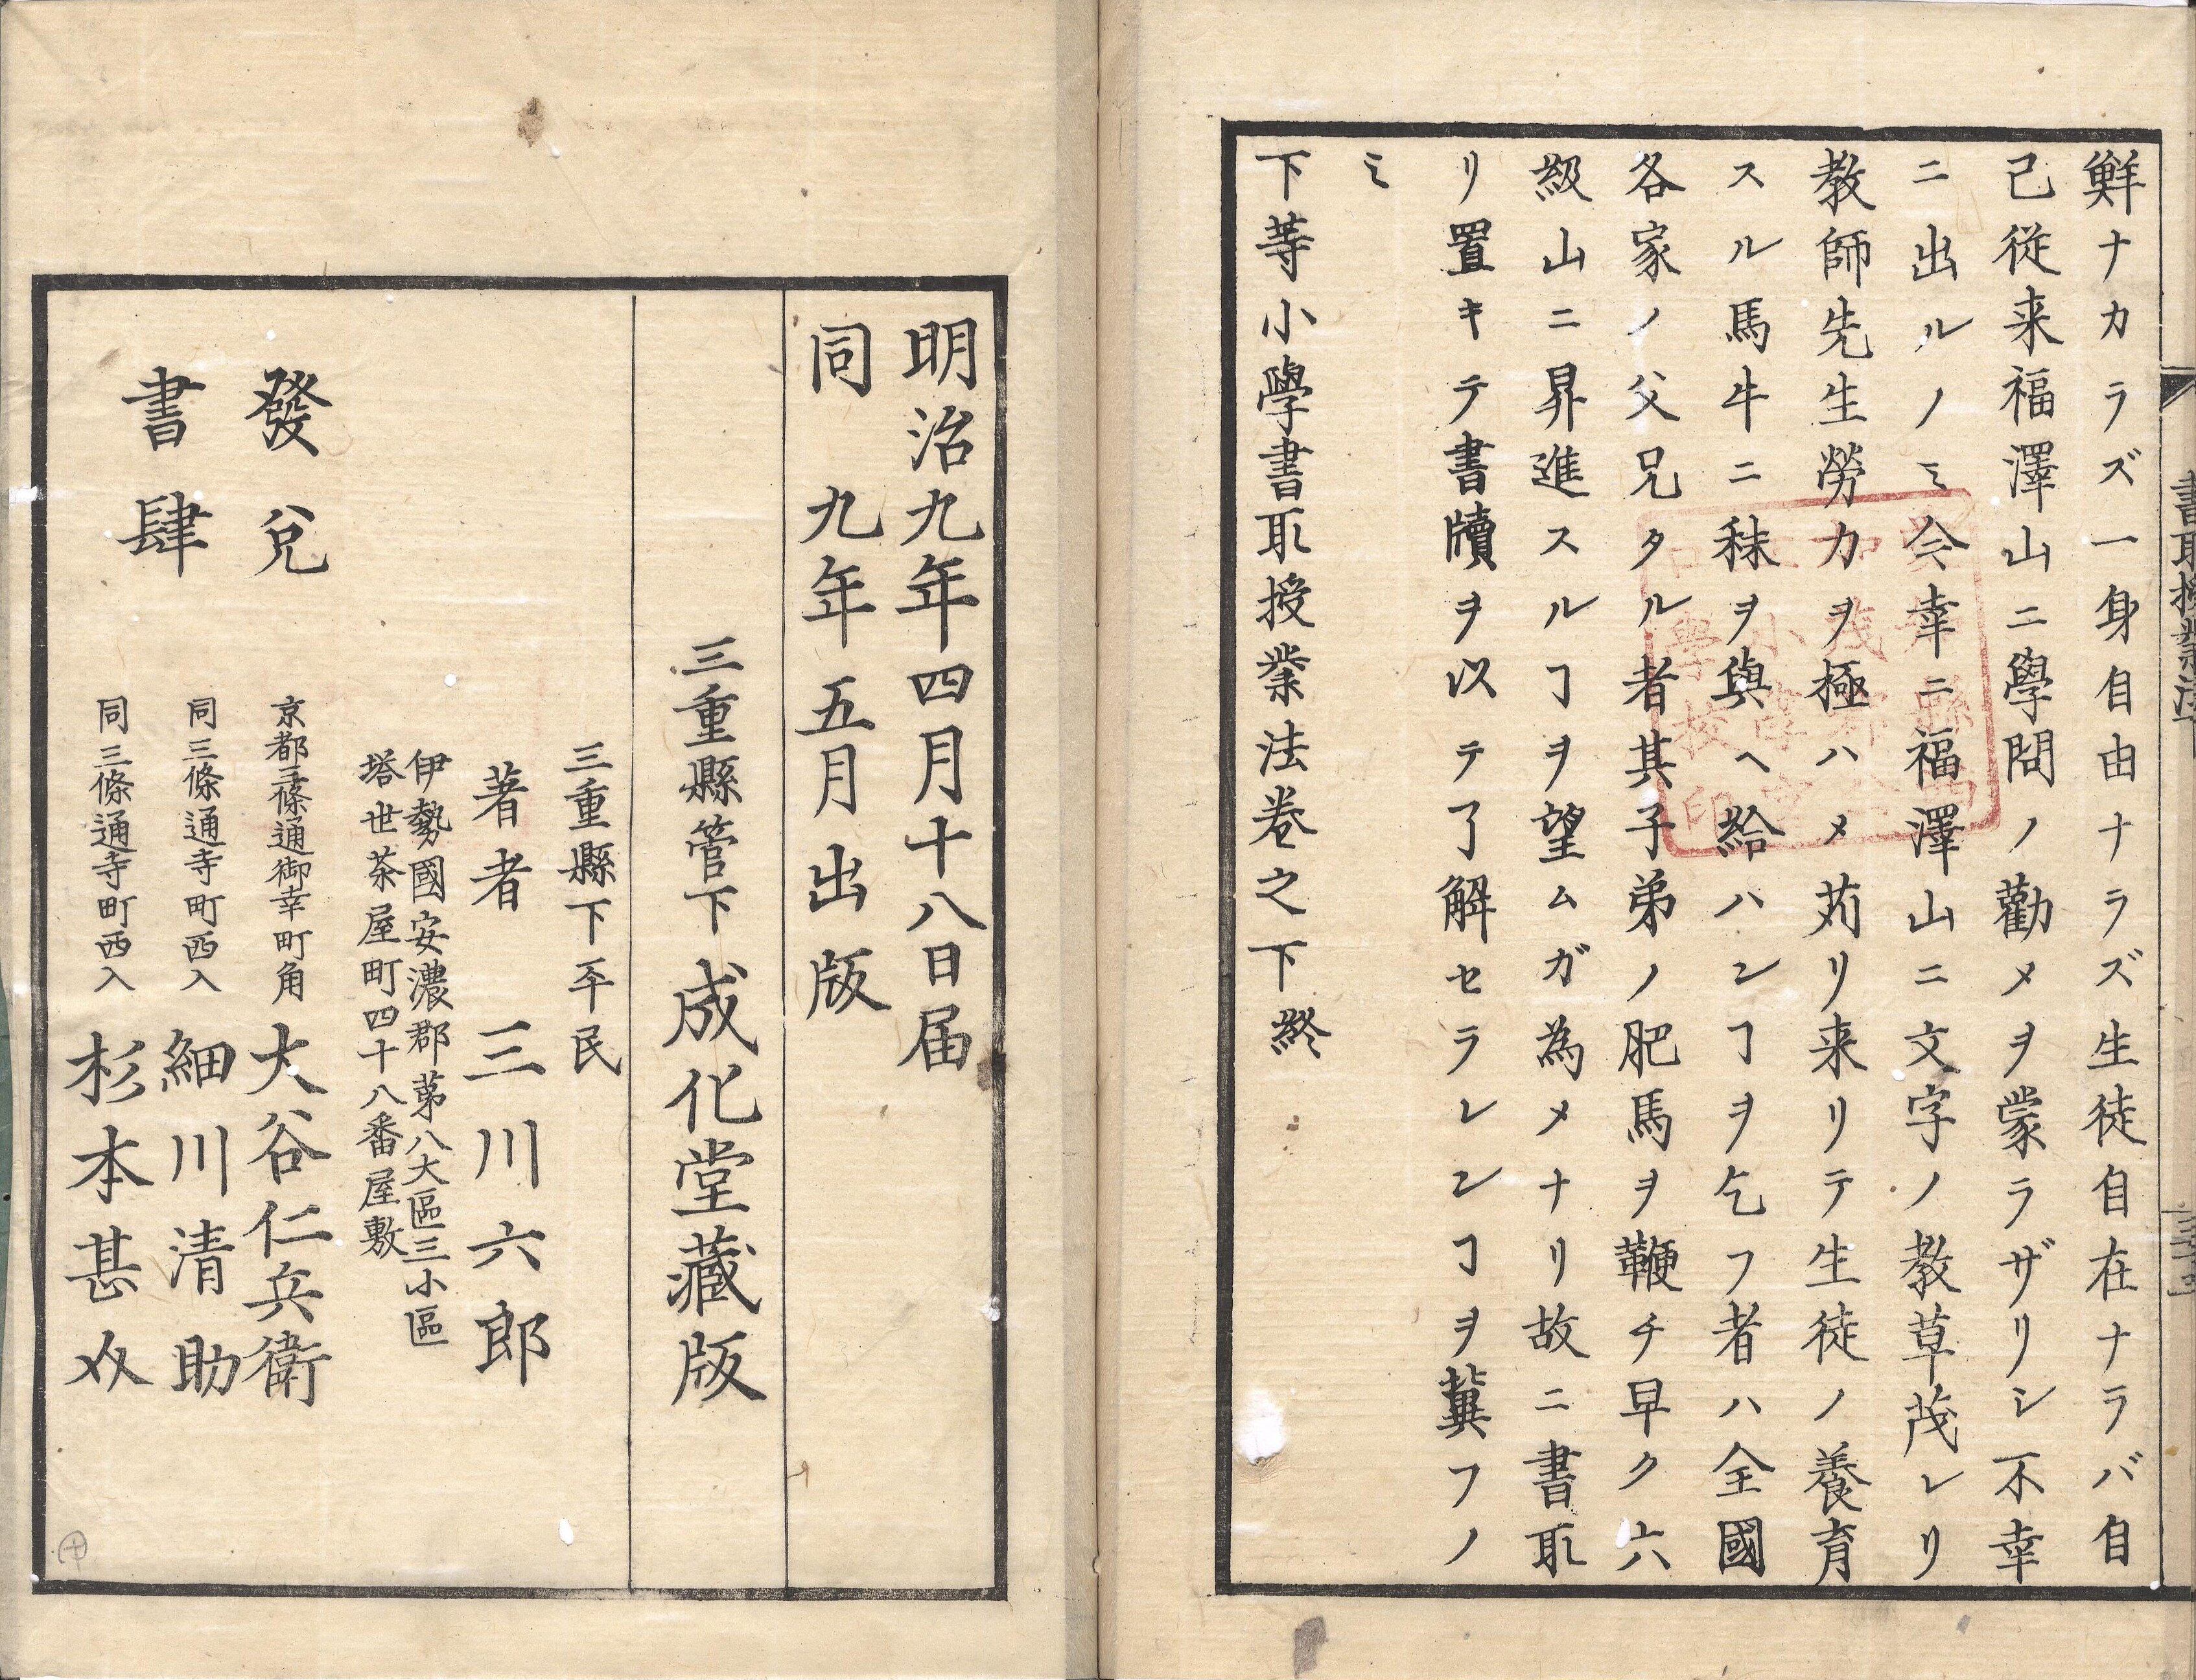 鮮ナカラズ一身自由ナラズ生徒自在ナラバ自
己従来福澤山ニ學問ノ勸メヲ蒙ラザリシ不幸
ニ出ルノミ今幸ニ福澤山ニ文字ノ教草茂レリ
教師先生勞力ヲ極ハメ苅リ来リテ生徒ノ養育
スル馬牛ニ秣ヲ與ヘ給ハンヿヲ乞フ者ハ全國
各家ノ父兄タル者其子弟ノ肥馬ヲ鞭チ早ク六
級山ニ昇進スルヿヲ望ムガ為メナリ故ニ書取
リ置キテ書牘ヲ以テ了解セラレンヿヲ冀フノ
ミ
下等小學書取授業法巻之下終
明治九年四月十八日届
同 九年五月出版
三重縣管下 成化堂藏版
三重縣下平民
著者 三川六郎
伊勢國安濃郡第八大區三小區
塔世茶屋町四十八番屋敷
發兌
書肆
京都三條通御幸町角 大谷仁兵衛
同三條通寺町西入 細川清助
同三條通寺町西入 杉本甚